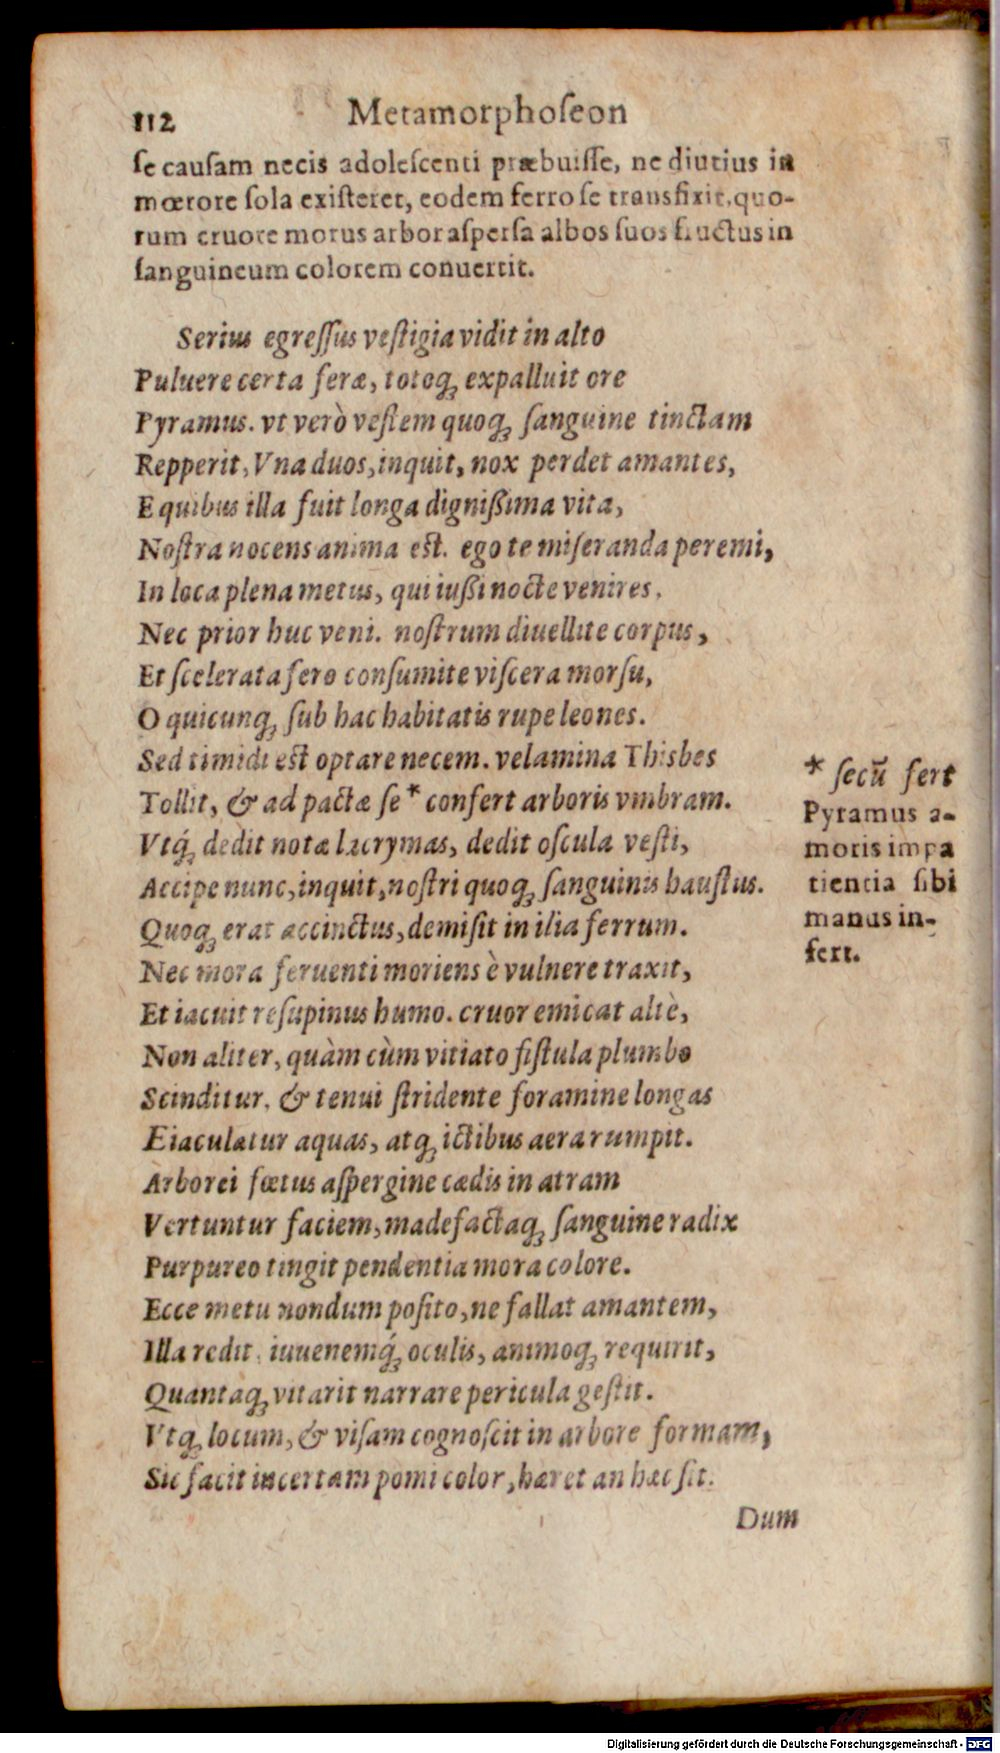 112 Metamorphoſeon
ſe cauſam necis adoleſcenti præbuiſſe, ne diutius in
mœrore ſola exiſteret, eodem ferro ſe transfixit, quo-
rum cruore motus arbor aſperſa albos ſuos fructus in
ſanguineum colorem conuertit.
Serius egreſſus veſtigia vidit in alto
Puluere certa feræ, totoq; expalluit ore
Pyramus. vt verò veſtem quoq; ſanguine tinctam
Repperit, Vna duos, inquit, nox perdet amantes,
E quibus illa fuit longa digniſsima vita,
Noſtra nocens anima est. ego te miſeranda peremi,
In loca plena metus, qui iuſsi nocte venires,
Nec prior huc veni. noſtrum diuellite corpus,
Et ſcelerata fero conſumite viſcera morſu,
O quicunq; ſub hac habitatis rupe leones.
Sed timidi est optare necem. velamina Thisbes
Tollit, & ad pactæ ſe * confert arboris vmbram.
Vtq́; dedit notæ lacrymas, dedit oſcula veſti,
Accipe nunc, inquit, noſtri quoq; ſanguinis hauſtus.
Quoq; erat accinctus, demiſit in ilia ferrum.
Nec mora feruenti moriens è vulnere traxit,
Et iacuit reſupinus humo. cruor emicat altè,
Non aliter, quàm cùm vitiato fiſtula plumbo
Scinditur, & tenui ſtridente foramine longas
Eiaculatur aquas, atq; ictibus aera rumpit.
Arborei fœtus aſpergine cædis in atram
Vertuntur faciem, madefactaq; ſanguine radix
Purpureo tingit pendentia mora colore.
Ecce metu nondum poſito, ne fallat amantem,
Illa redit, iuuenemq́; oculis, animoq; requirit,
Quantaq; vitarit narrare pericula geſtit.
Vtq; locum, & viſam cognoſcit in arbore formam,
Sic facit incertam pomi color, hæret an hæc ſit.
Dum
* ſecū fert
Pyramus a-
moris impa
tientia ſibi
manus in-
fert.
Digitalisierung gefördert durch die Deutsche Forschungsgemeinschaft - DFG